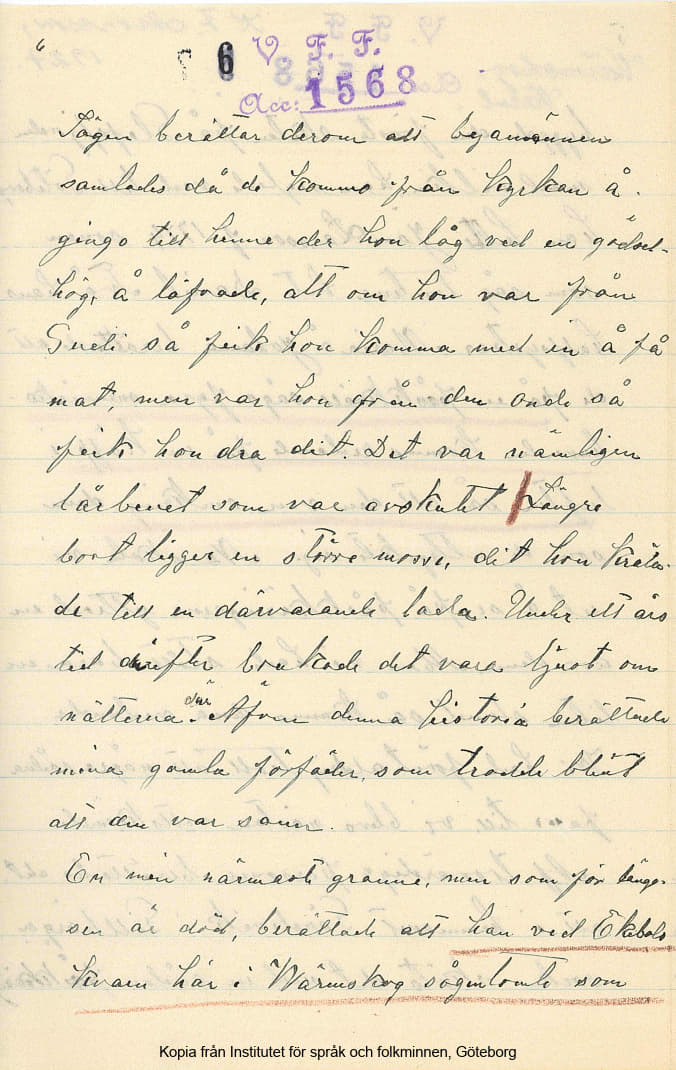 6
6 V. F. F.
Acc: 1568
Sägen berättar derom att byamännen
samlades då de kommo från kyrkan å
gingo till henne der hon låg ved en gödsel-
hög, å låfvade, att om hon var från
Gud så feik hon komma med in å få
mat, men var hon från den onde så
feik hon dra dit. Det var nämligen
lårbenet som var avskutet / Längre
bort ligger en större mosse, dit hon kräla-
de till en därvarande lada. Under ett års
tid därefter brukade det vara ljust om
nätterna där. Äfven denna historia berättade
mina gamla förfäder, som trodde blint
att den var sann.
En min närmaste granne, men som för länge-
sen är död, berättade att han vid Ekebols
kvarn här i Wärmskog sågentomte som
Kopia från Institutet för språk och folkminnen, Göteborg